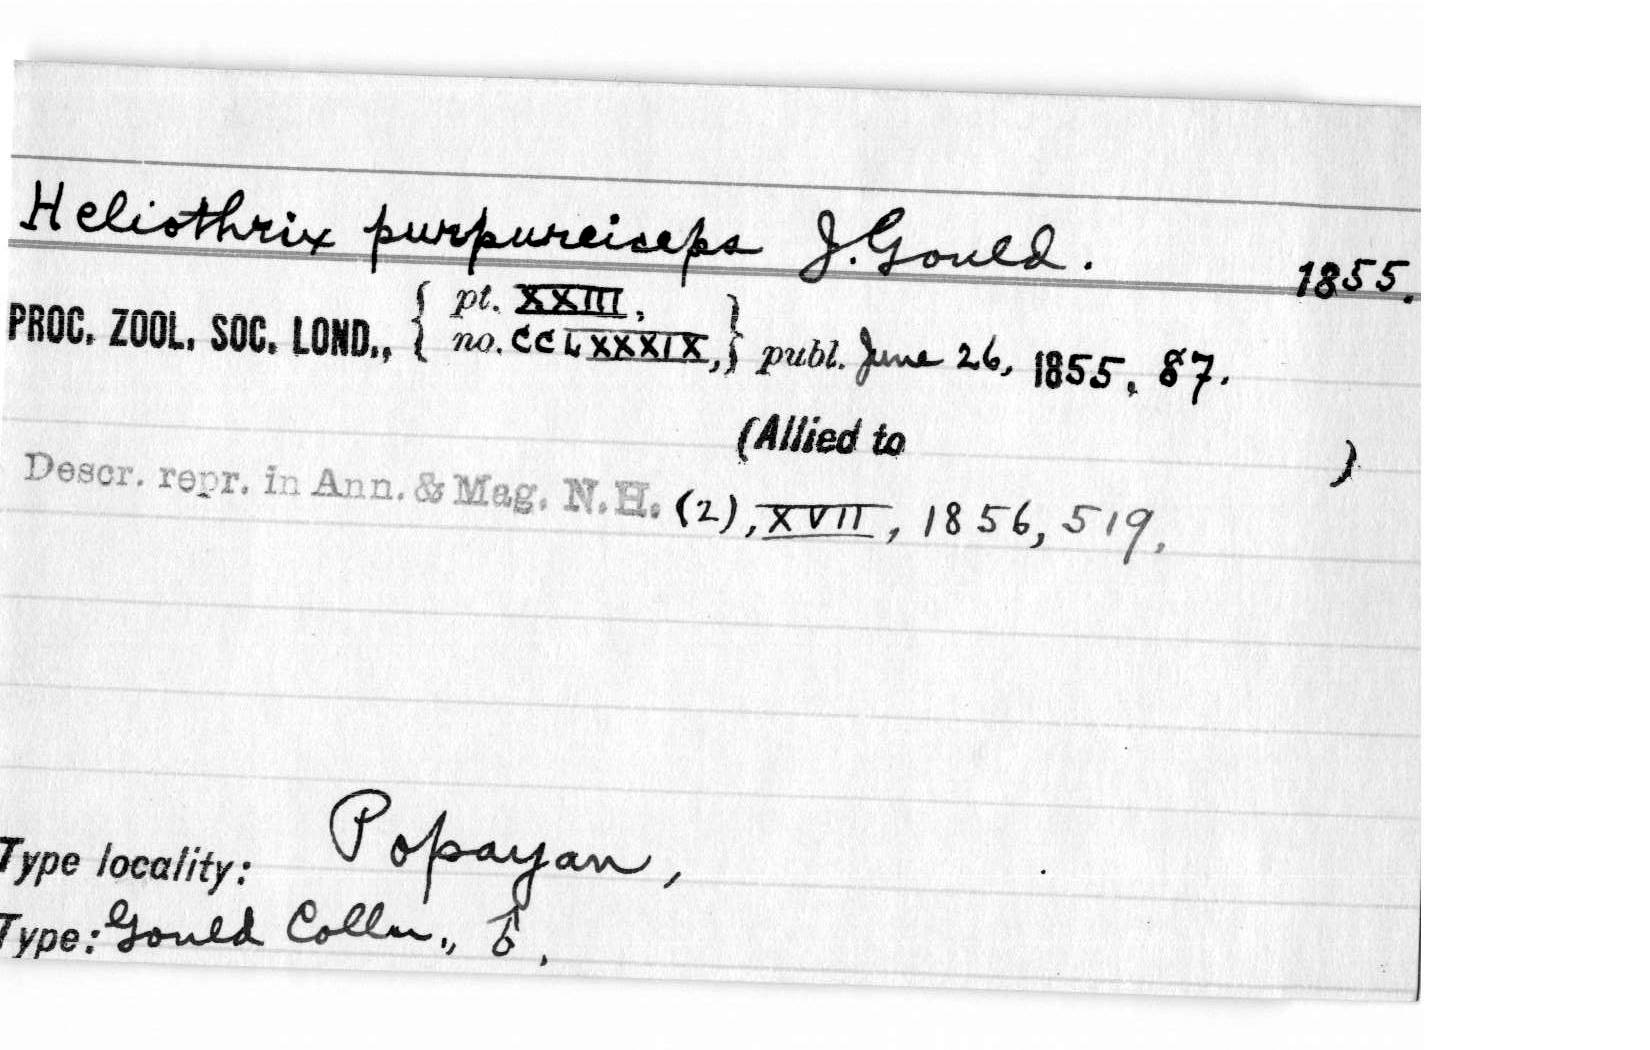 Heliothrix purpureiceps J. Gould. 1855.
PROC. ZOOL. SOC. LOND., { pt. XXIII, no. CCLXXXIX, } publ. June 26, 1855, 87.
(Allied to )
Descr. repr. in Ann. & Mag. N.H. (2), XVII, 1856, 519.
Type locality: Popayan,
Type: Gould Colln., ♂.